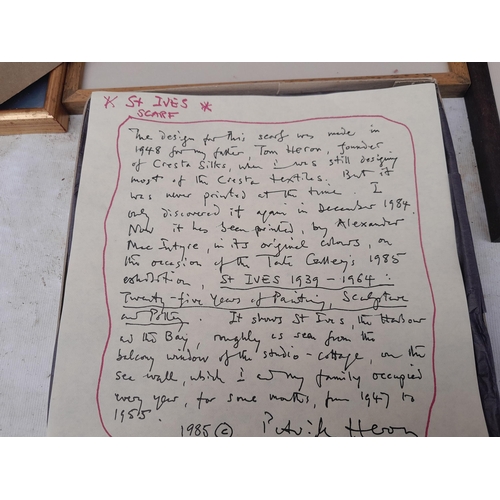 * St IVES *
SCARF
The design for this scarf was made in
1948 for my father, Tom Heron, founder
of Cresta Silks, when I was still designing
most of the Cresta textiles. But it
was never printed at the time. I
only discovered it again in December 1984.
Now it has been printed, by Alexander
MacIntyre, in its original colours, on
the occasion of the Tate Gallery's 1985
exhibition, St IVES 1939-1964:
Twenty-five Years of Painting, Sculpture
and Pottery. It shows St Ives, the Harbour
and the Bay, roughly as seen from the
balcony window of the studio-cottage, on the
sea wall, which I and my family occupied
every year, for some months, from 1947 to
1955.
1985 (c) Patrick Heron